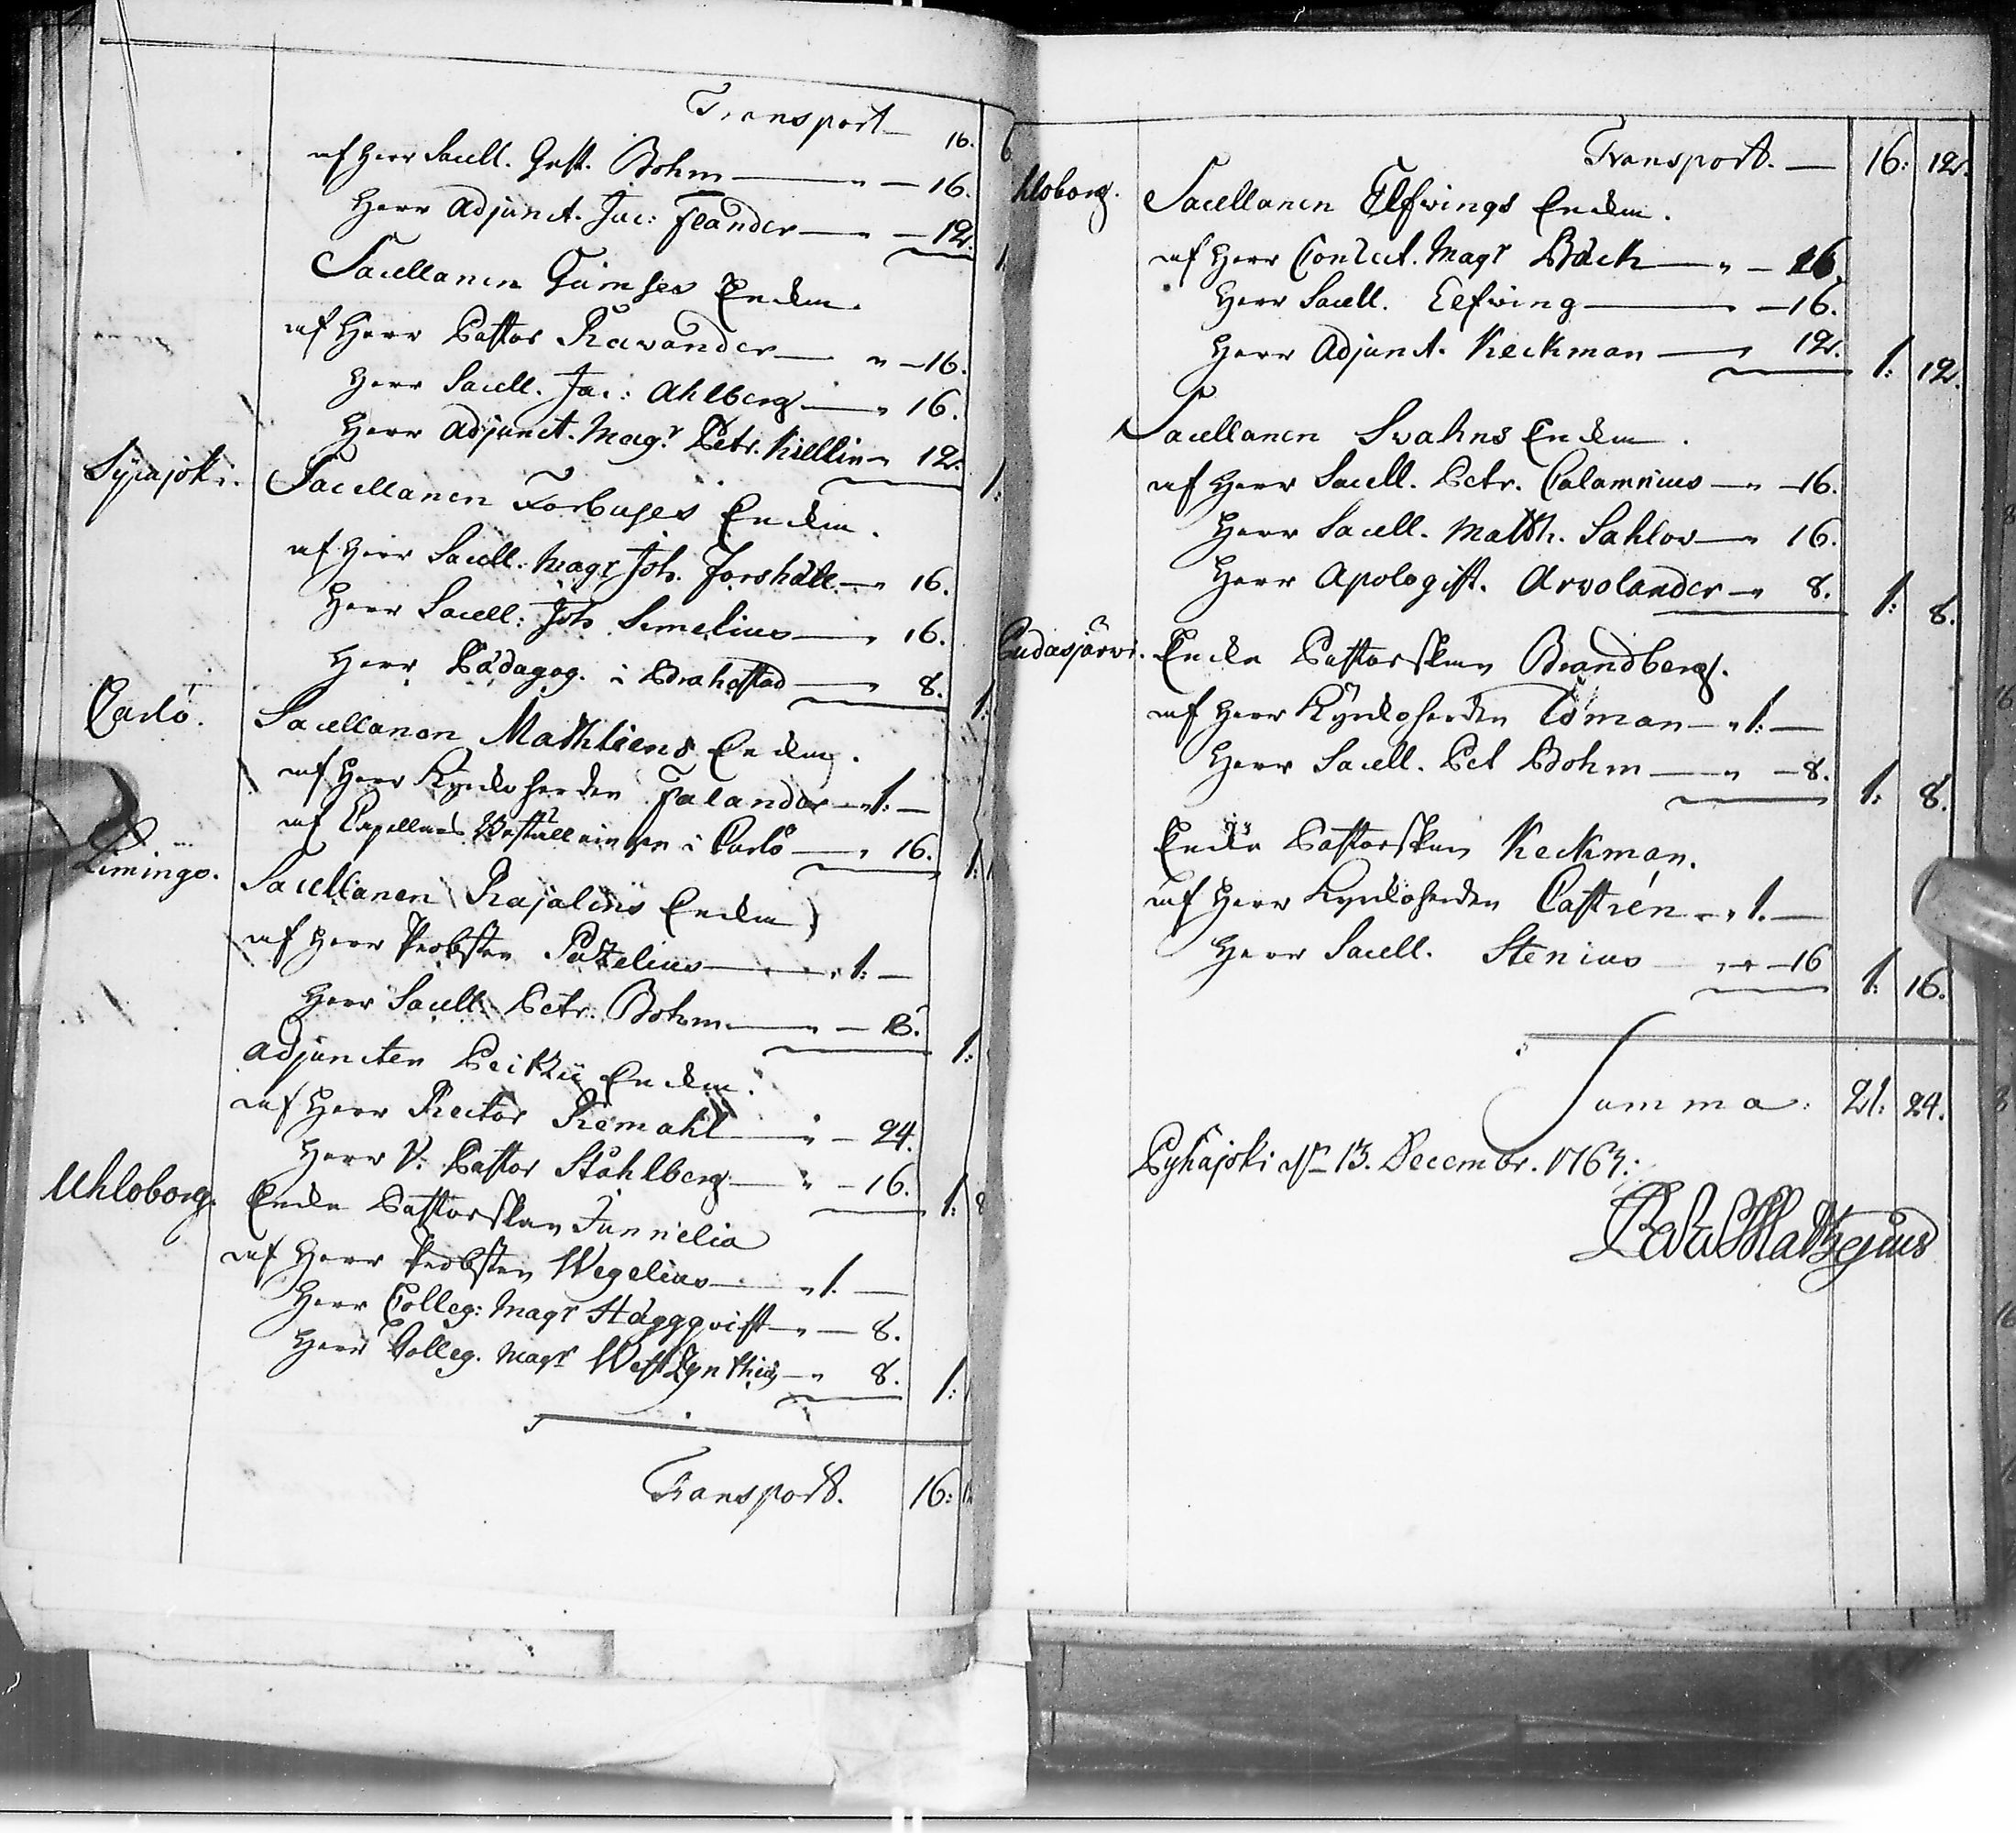 Transport 16. 6
af Herr Sacell. Gust. Bohm — " — 16.
Herr Adjunct. Jac: Flander — " — 12. 1.
Sacellanen Gumses Enckm.
af Herr Pastor Ravander — " — 16.
Herr Sacell. Jac: Ahlberg — " 16.
Herr Adjunct. Magr Petr. Kiellin — " 12. 1:
Syikajok: Sacellanen Forbuses Enckm.
af Herr Sacell. Magr Joh. Forshäll — " 16.
Herr Sacell: Joh Simelius — " 16.
Herr Pädagog. i Brahestad — " 8. 1:
Carlö. Sacellanen Mathliens Enckm.
af Herr Kyrckoherden Falander — " 1: —
af Capellans Beställningen i Carlö — " 16. 1:
Limingo. Sacellanen Rajalins Enckm
af Herr Probsten Pazelius — " 1: —
Herr Sacell. Petr. Bohm — " — 8. 1:
Adjuncten Peitzii Enckm.
af Herr Rector Remahl — " — 24.
Herr V. Pastor Ståhlberg — " — 16. 1: 8
Uhloborg. Encke Pastorskan Junnelia
af Herr Probsten Wegelius — " 1. —
Herr Colleg: Magr Häggqvist — " — 8.
Herr Colleg. Magr Westzynthius — " 8. 1:
Transport. 16: 12
Transport. — 16: 12.
Uhloborg. Sacellanen Elfvings Enckm.
af Herr Conrect. Magr Bäck — " — 16.
Herr Sacell. Elfving — — 16.
Herr Adjunct. Keckman — " 12. 1: 12.
Sacellanen Svahns Enckm.
af Herr Sacell. Petr. Calamnius — " — 16.
Herr Sacell. Matth. Sahlov — " 16.
Herr Apologist. Arvolander — " 8. 1: 8.
Pudasjärvi. Encke Pastorskan Brandberg.
af Herr Kyrckoherden Toman — " 1: —
Herr Sacell. Pet Bohm — " — 8. 1: 8.
Encke Pastorskan Keckman.
af Herr Kyrckoherden Castrén — " 1. —
Herr Sacell. Stenius — " — 16 1: 16.
Summa: 21: 24.
Pyhäjoki d. 13. Decembr. 1763: